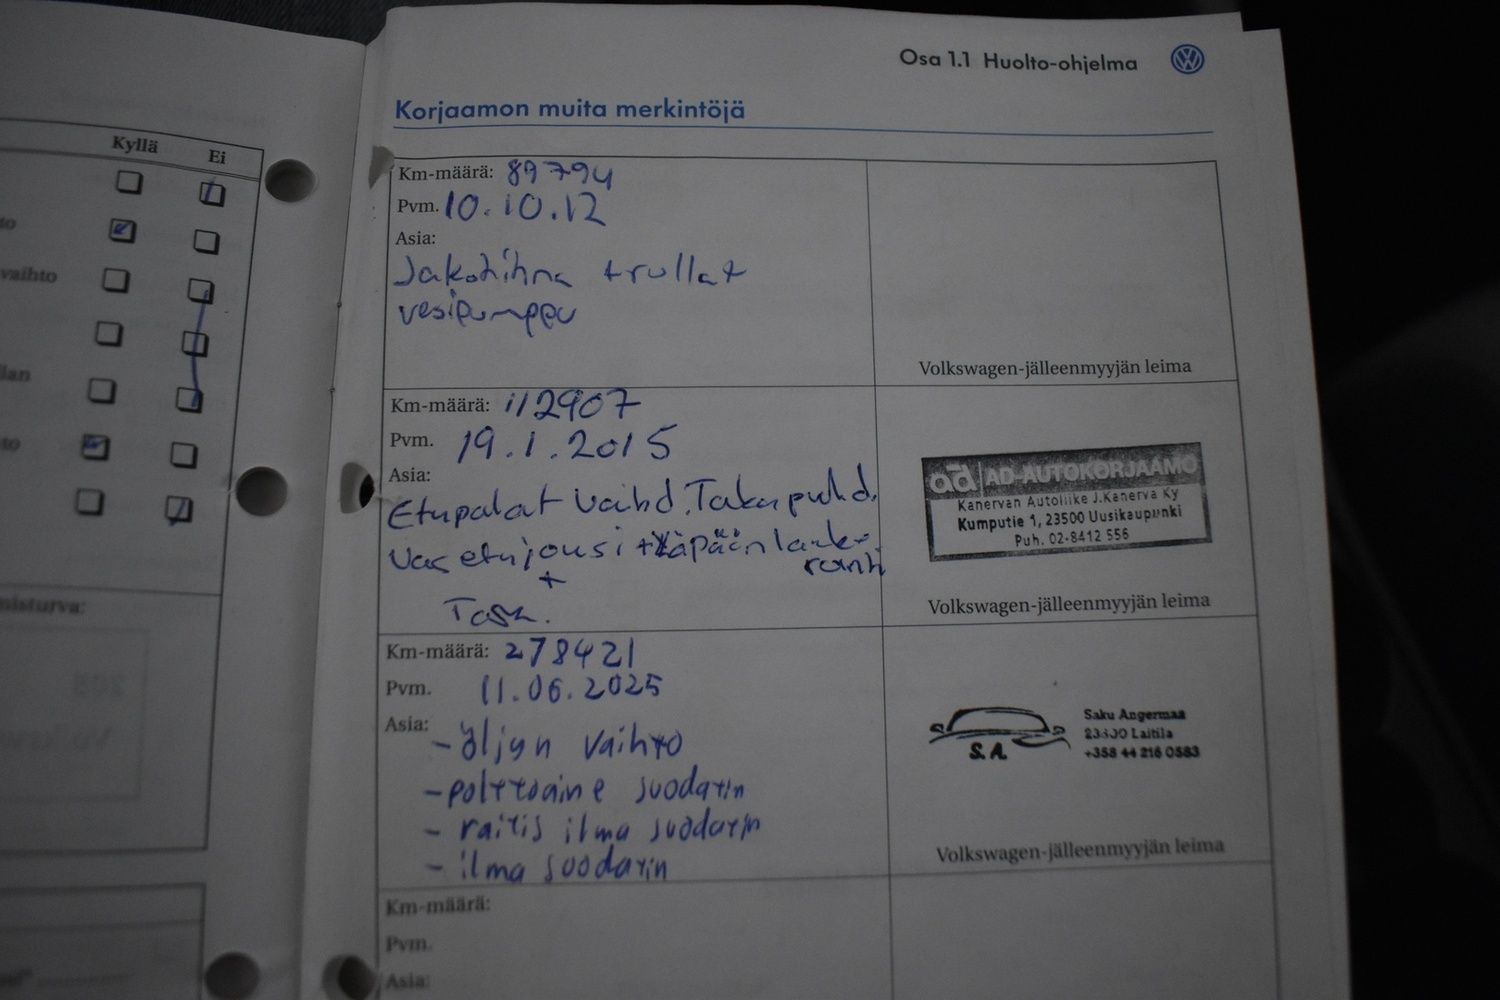 Osa 1.1 Huolto-ohjelma
Korjaamon muita merkintöjä
Kyllä Ei
to
vaihto
llan
to
misturva:
Km-määrä: 89794
Pvm. 10.10.12
Asia:
Jakohihna + rullat
vesipumppu
Volkswagen-jälleenmyyjän leima
Km-määrä: 112907
Pvm. 19.1.2015
Asia:
Etupalat vaihd. Takap puhd.
Vas etujousi + yläpään laake-
+
Volkswagen-jälleenmyyjän leima
ad AD-AUTOKORJAAMO
Kanervan Autoliike J.Kanerva Ky
Kumputie 1, 23500 Uusikaupunki
Puh. 02-8412 556
Km-määrä: 278421
Pvm. 11.06.2025
Asia:
- öljyn vaihto
- polttoaine suodatin
- raitis ilma suodatin
- ilma suodatin
S.A.
Saku Angermaa
Laitila
+358 44 216 0583
Volkswagen-jälleenmyyjän leima
Km-määrä:
Pvm.
Asia: